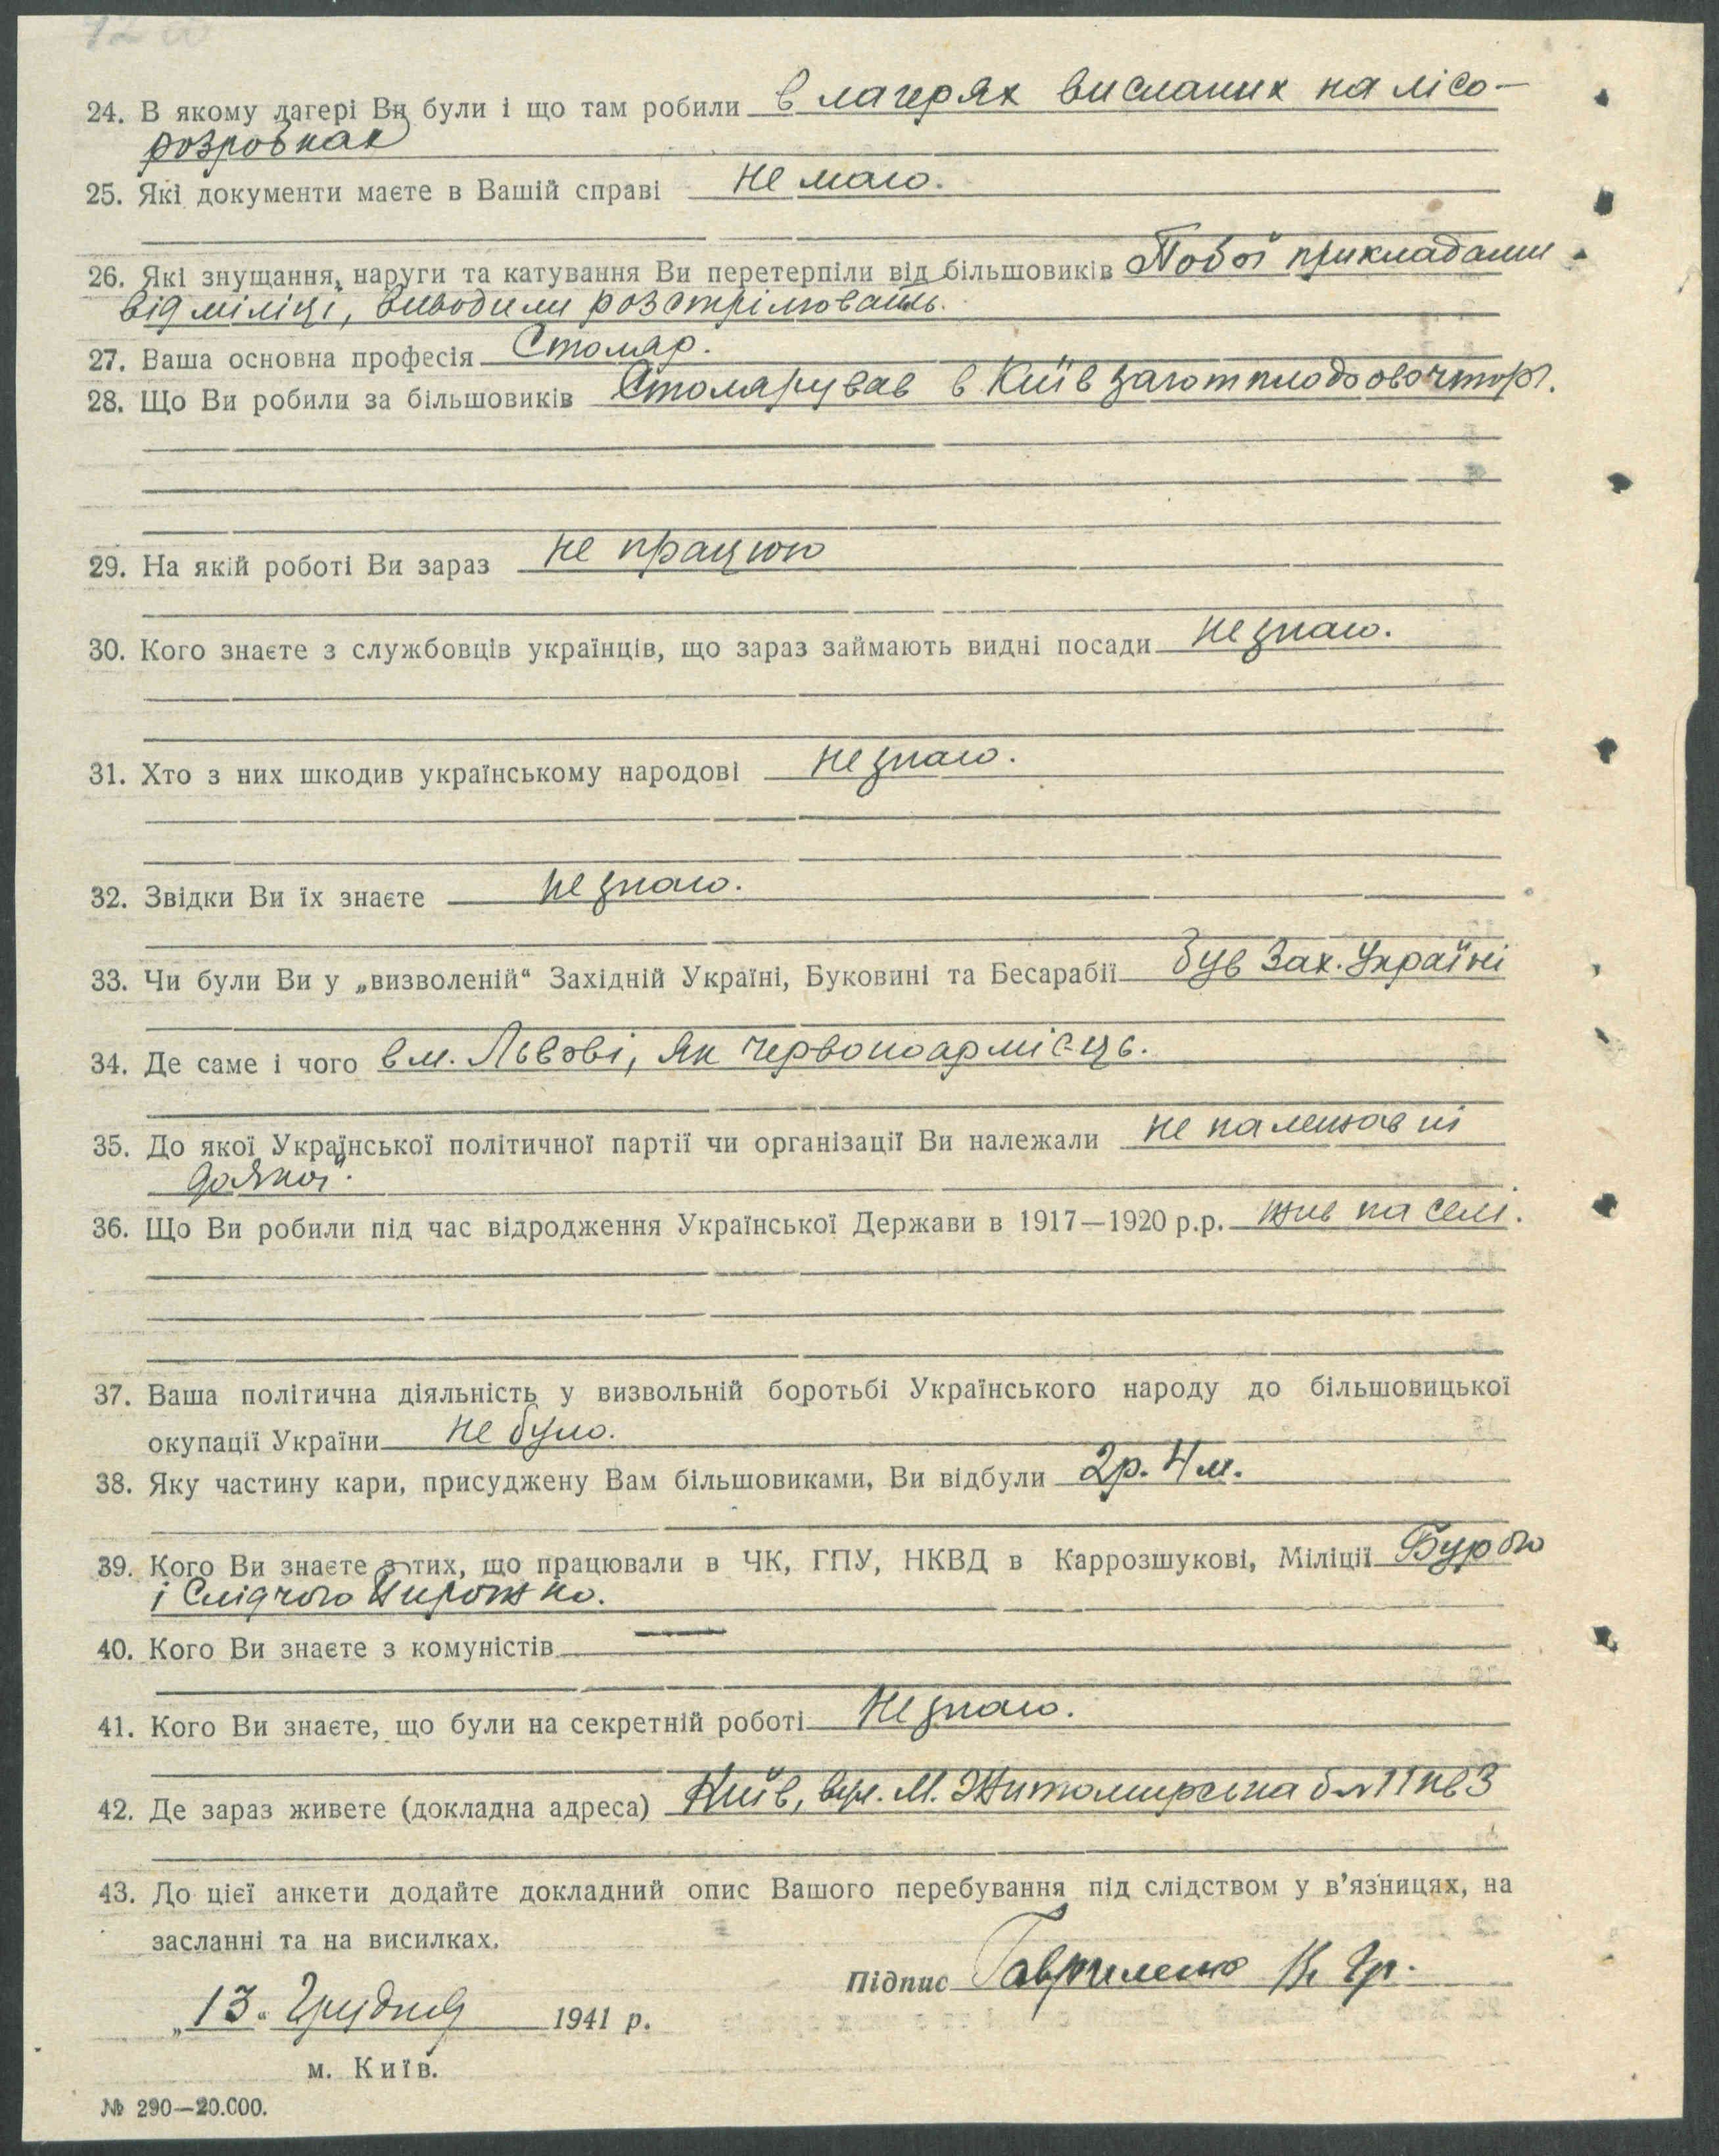 24. В якому лагері Ви були і що там робили в лагерях висланих на лісо-
розробках
25. Які документи маєте в Вашій справі не маю.
26. Які знущання, наруги та катування Ви перетерпіли від більшовиків Побої прикладами
від міліції, виводили розстрілювать.
27. Ваша основна професія Столяр.
28. Що Ви робили за більшовиків Столярував в Київзаготплодоовочторг.
29. На якій роботі Ви зараз не працюю
30. Кого знаєте з службовців українців, що зараз займають видні посади не знаю.
31. Хто з них шкодив українському народові не знаю.
32. Звідки Ви їх знаєте не знаю.
33. Чи були Ви у „визволеній“ Західній Україні, Буковині та Бесарабії був Зах. Україні
34. Де саме і чого в м. Львові, як червоноармієць.
35. До якої Української політичної партії чи організації Ви належали не належав ні
до якої.
36. Що Ви робили під час відродження Української Держави в 1917—1920 р.р. жив на селі.
37. Ваша політична діяльність у визвольній боротьбі Українського народу до більшовицької
окупації України не було.
38. Яку частину кари, присуджену Вам більшовиками, Ви відбули 2р. 4 м.
39. Кого Ви знаєте з тих, що працювали в ЧК, ГПУ, НКВД в Каррозшукові, Міліції
і Слідчого
40. Кого Ви знаєте з комуністів —
41. Кого Ви знаєте, що були на секретній роботі Не знаю.
42. Де зараз живете (докладна адреса) Київ, вул. М. Житомирська б № 11 кв 3
43. До цієї анкети додайте докладний опис Вашого перебування під слідством у в’язницях, на
засланні та на висилках.
Підпис Гавриленко К. Гр.
„13“ Грудня 1941 р.
м. Київ.
№ 290—20.000.